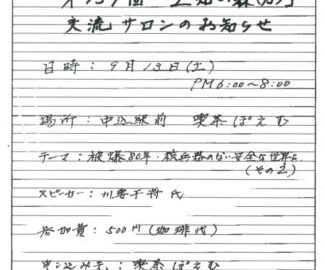 交流サロンのお知らせ
日時：9月13日(土)
PM6:00～8:00
場所：中込駅前 喫茶ぽえむ
テーマ：被爆80年・核兵器のない安全な世界を
(その2)
スピーカー：川妻干将 氏
参加費：500円(珈琲代)
申し込み先：喫茶ぽえむ